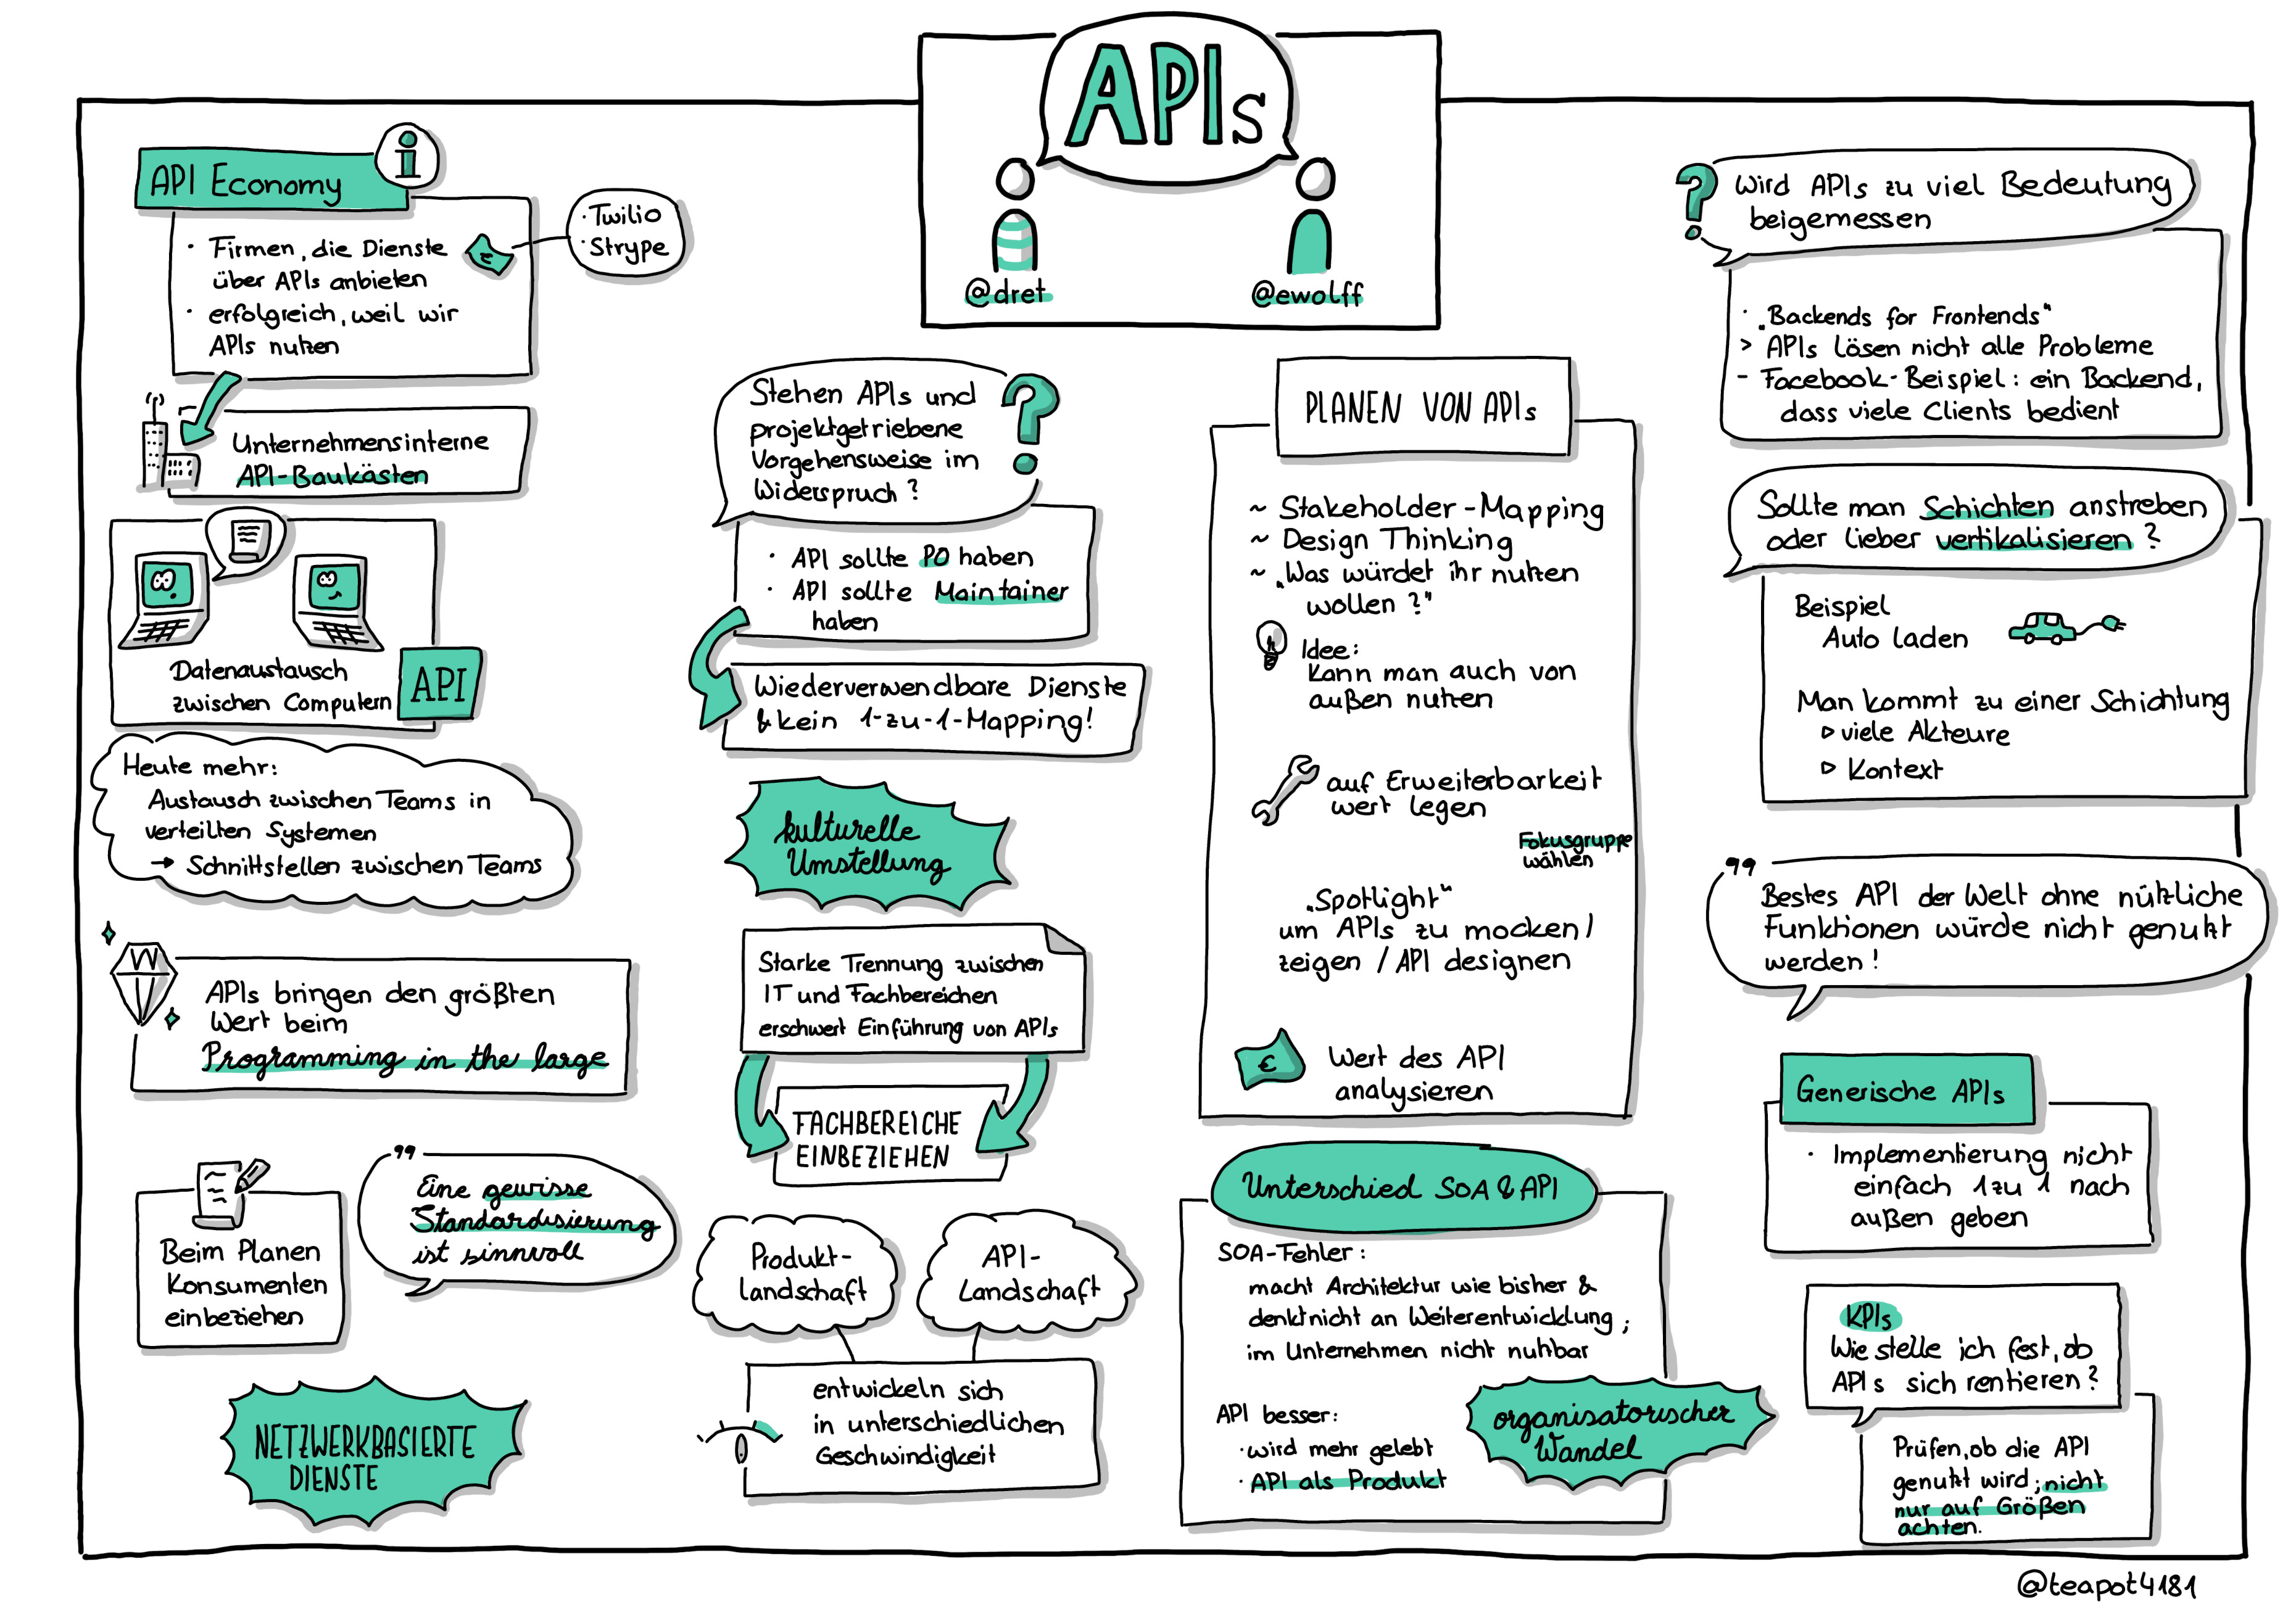 APIs
@dret
@ewolff
API Economy
i
· Firmen, die Dienste
über APIs anbieten
· erfolgreich, weil wir
APIs nutzen
€
· Twilio
· Strype
Unternehmensinterne
API-Baukästen
Datenaustausch
zwischen Computern
API
Heute mehr:
Austausch zwischen Teams in
verteilten Systemen
→ Schnittstellen zwischen Teams
APIs bringen den größten
Wert beim
Programming in the large
Beim Planen
Konsumenten
einbeziehen
"
Eine gewisse
Standardisierung
ist sinnvoll
NETZWERKBASIERTE
DIENSTE
Stehen APIs und
projektgetriebene
Vorgehensweise im
Widerspruch?
?
· API sollte PO haben
· API sollte Maintainer
haben
Wiederverwendbare Dienste
& kein 1-zu-1-Mapping!
kulturelle
Umstellung
Starke Trennung zwischen
IT und Fachbereichen
erschwert Einführung von APIs
FACHBEREICHE
EINBEZIEHEN
Produkt-
landschaft
API-
Landschaft
entwickeln sich
in unterschiedlichen
Geschwindigkeit
PLANEN VON APIs
~ Stakeholder-Mapping
~ Design Thinking
~ „Was würdet ihr nutzen
wollen?"
Idee:
Kann man auch von
außen nutzen
auf Erweiterbarkeit
wert legen
Fokusgruppe
wählen
„Spotlight"
um APIs zu mocken/
zeigen / API designen
€
Wert des API
analysieren
Unterschied SOA & API
SOA-Fehler:
macht Architektur wie bisher &
denkt nicht an Weiterentwicklung;
im Unternehmen nicht nutzbar
API besser:
· wird mehr gelebt
· API als Produkt
organisatorischer
Wandel
?
Wird APIs zu viel Bedeutung
beigemessen
· „Backends for Frontends"
> APIs lösen nicht alle Probleme
- Facebook-Beispiel: ein Backend,
dass viele Clients bedient
Sollte man Schichten anstreben
oder lieber vertikalisieren?
Beispiel
Auto laden
Man kommt zu einer Schichtung
▷ viele Akteure
▷ Kontext
"
Bestes API der Welt ohne nützliche
Funktionen würde nicht genutzt
werden!
Generische APIs
· Implementierung nicht
einfach 1 zu 1 nach
außen geben
KPIs
Wie stelle ich fest, ob
APIs sich rentieren?
Prüfen, ob die API
genutzt wird; nicht
nur auf Größen
achten.
@teapot4181